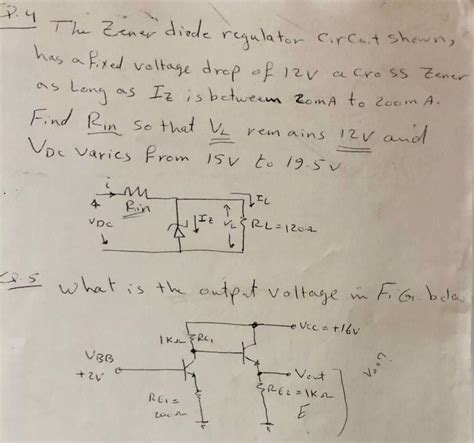 Q.4 The Zener diode regulator circuit shown,
has a fixed voltage drop of 12V across Zener
as Long as Iz is between 20mA to 200mA.
Find Rin so that VL remains 12V and
VDC varies from 15V to 19.5V
i
Rin
IL
VDC
Iz
VL
RL=120Ω
Q.5 What is the output voltage in FiG. below
VCC = +16V
1KΩ
RC1
VBB
+2V
Vout
RE1=
200Ω
RE2=1KΩ
E